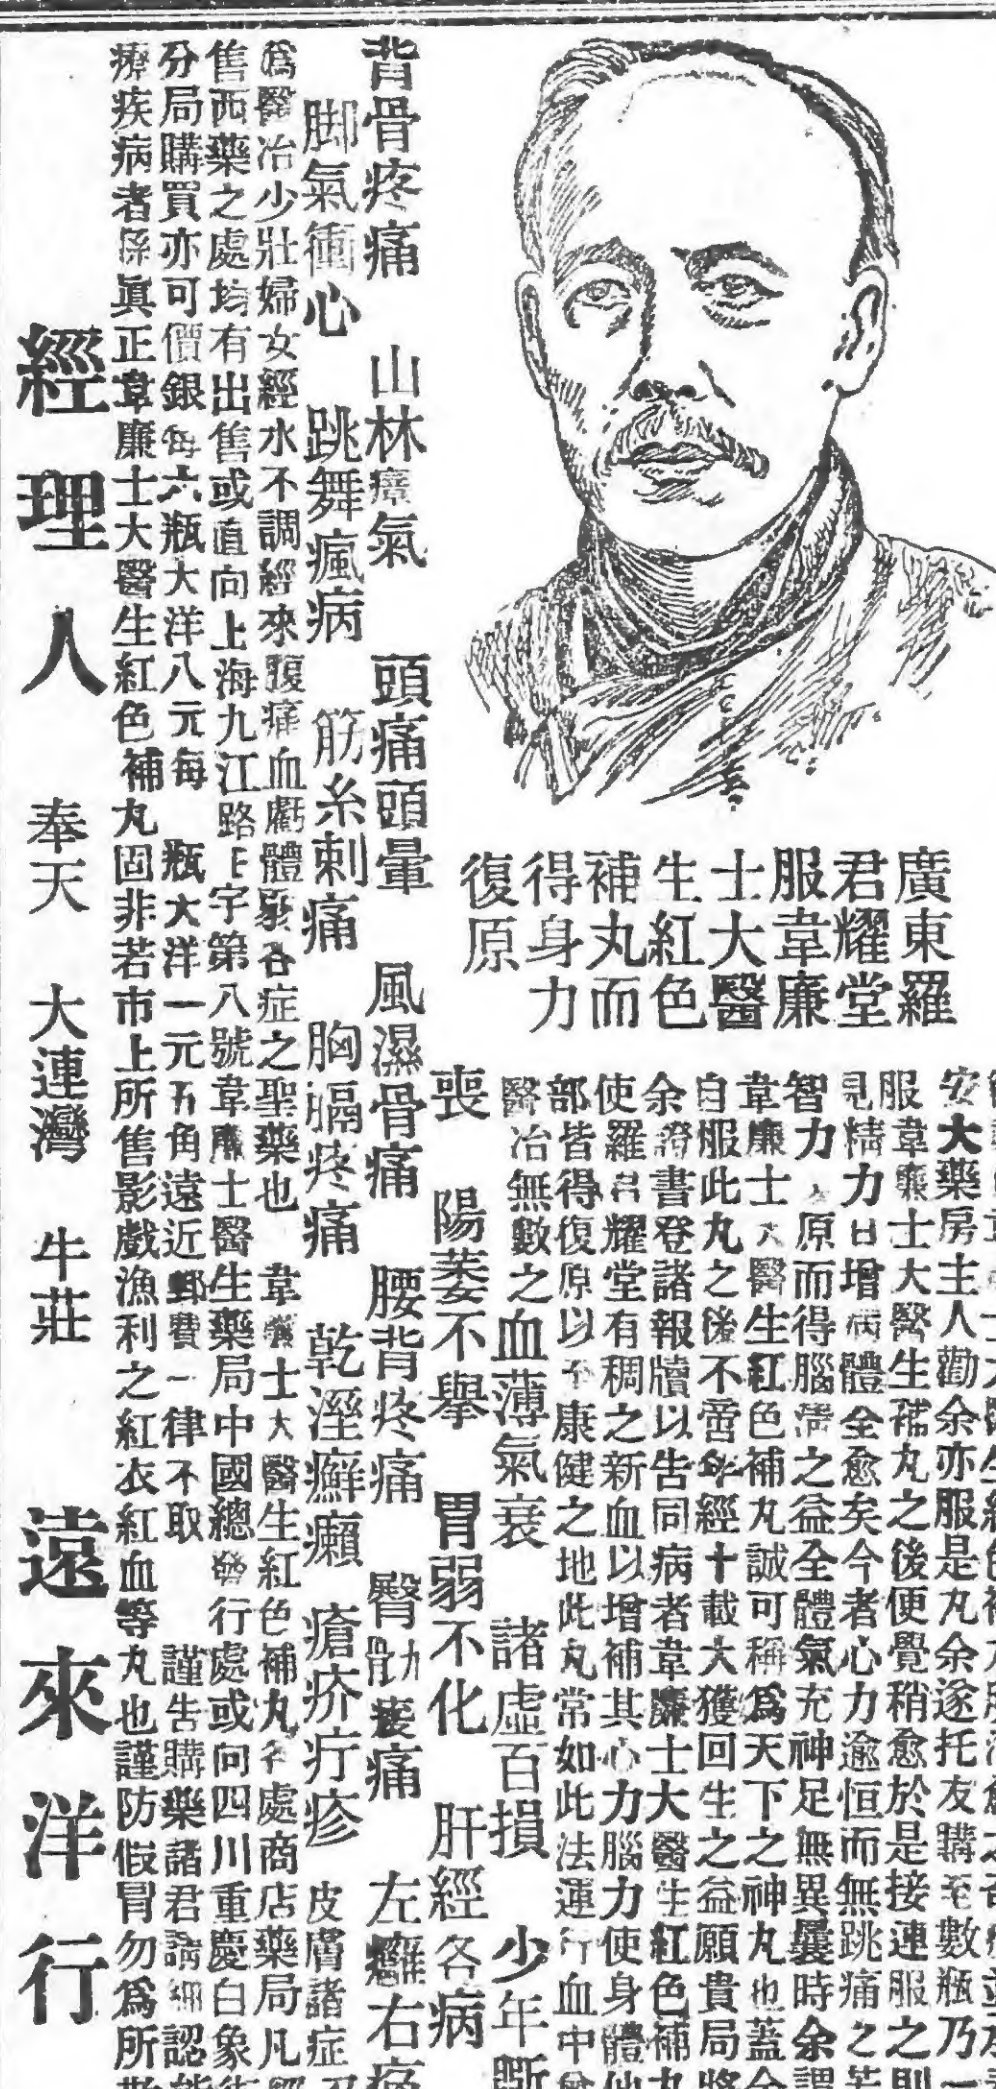 廣東羅
君耀堂
服韋廉
士大醫
生紅色
補丸而
得身力
復原
安大藥房主人勸余亦服是丸余遂托友購至數瓶乃一
服韋廉士大醫生補丸之後便覺稍愈於是接連服之則
見精力日增病體全愈矣今者心力逾恒而無跳痛之苦
智力 原而得腦 之益全體氣充神足無異曩時余謂
韋廉士大醫生紅色補丸誠可稱爲天下之神丸也蓋余
自服此丸之後不啻 經十載大獲回生之益願貴局將
余證書登諸報牘以告同病者韋廉士大醫生紅色補丸
使羅君耀堂有稠之新血以增補其心力腦力使身體他
部皆得復原以至康健之地此丸常如此法運行血中曾
醫治無數之血薄氣衰 諸虛百損 少年斷
喪 陽萎不舉 胃弱不化 肝經各病
背骨疼痛 山林瘴氣 頭痛頭暈 風濕骨痛 腰背疼痛 臀 痠痛 左癱右瘓
脚氣衝心 跳舞瘋病 筋糸刺痛 胸膈疼痛 乾溼癬癩 瘡疥疔疹 皮膚諸症
爲醫治少壯婦女經水不調經來腹痛血虧體弱各症之聖藥也 韋廉士大醫生紅色補丸各處商店藥局凡經
售西藥之處均有出售或直向上海九江路E字第八號韋廉士醫生藥局中國總發行處或向四川重慶白象街
分局購買亦可價銀每六瓶大洋八元每 瓶大洋一元五角遠近郵費一律不取 謹告購藥諸君請細認能
療疾病者係眞正韋廉士大醫生紅色補丸固非若市上所售影戲漁利之紅衣紅血等丸也謹防假冒勿爲所欺
經理人 奉天 大連灣 牛莊 遠來洋行